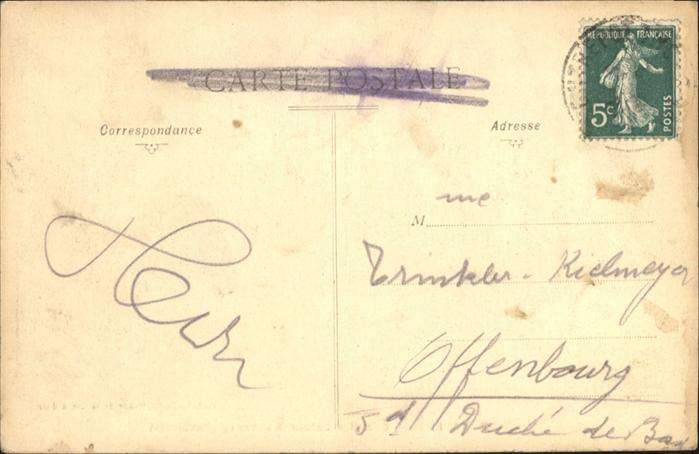 CARTE POSTALE
RÉPUBLIQUE FRANÇAISE
5c
POSTES
Correspondance
Adresse
M me
Trinkler-Kielmeyer
Offenbourg
Duché de Bad